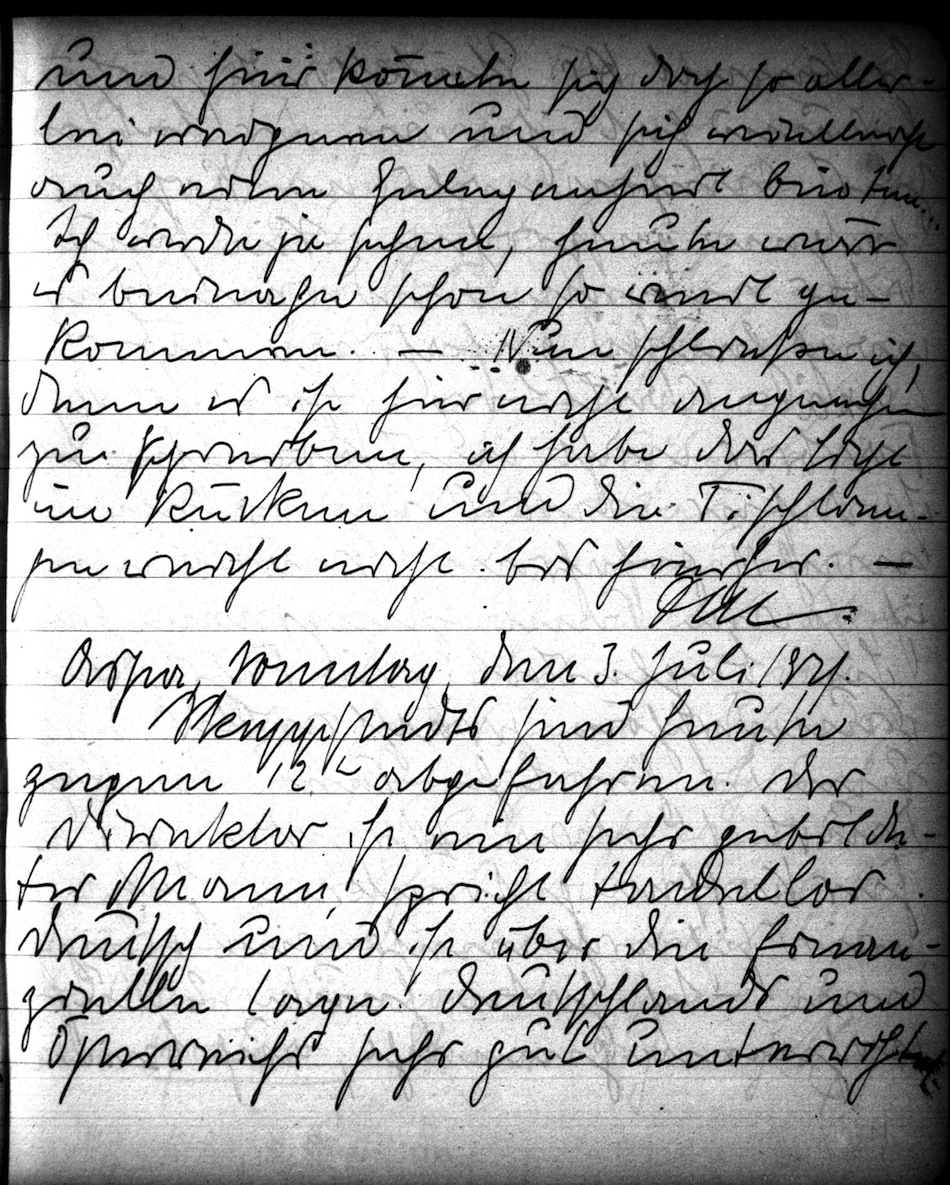 und hier könnte sich doch so aller-
lei ereignen und sich vielleicht
auch eine Gelegenheit bieten...
Ich werde ja sehen, heute wäre
es beinahe schon so weit ge-
kommen. — Nun schließe ich,
denn es ist hier nicht angenehm
zu schreiben, ich habe das Licht
im Rücken und die Tischlam-
pe reicht nicht bis hierher. —
Sonntag, den 3. Juli 1921.
sind heute
gegen 12 h abgefahren. Der
Direktor ist ein sehr gebilde-
ter Mann, spricht tadellos
deutsch und ist über die finan-
zielle Lage Deutschlands und
Österreichs sehr gut unterrichtet